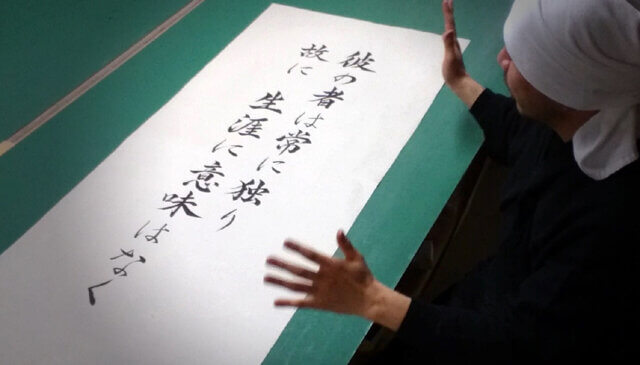 彼の者は常に独り
故に 生涯に意味はなく